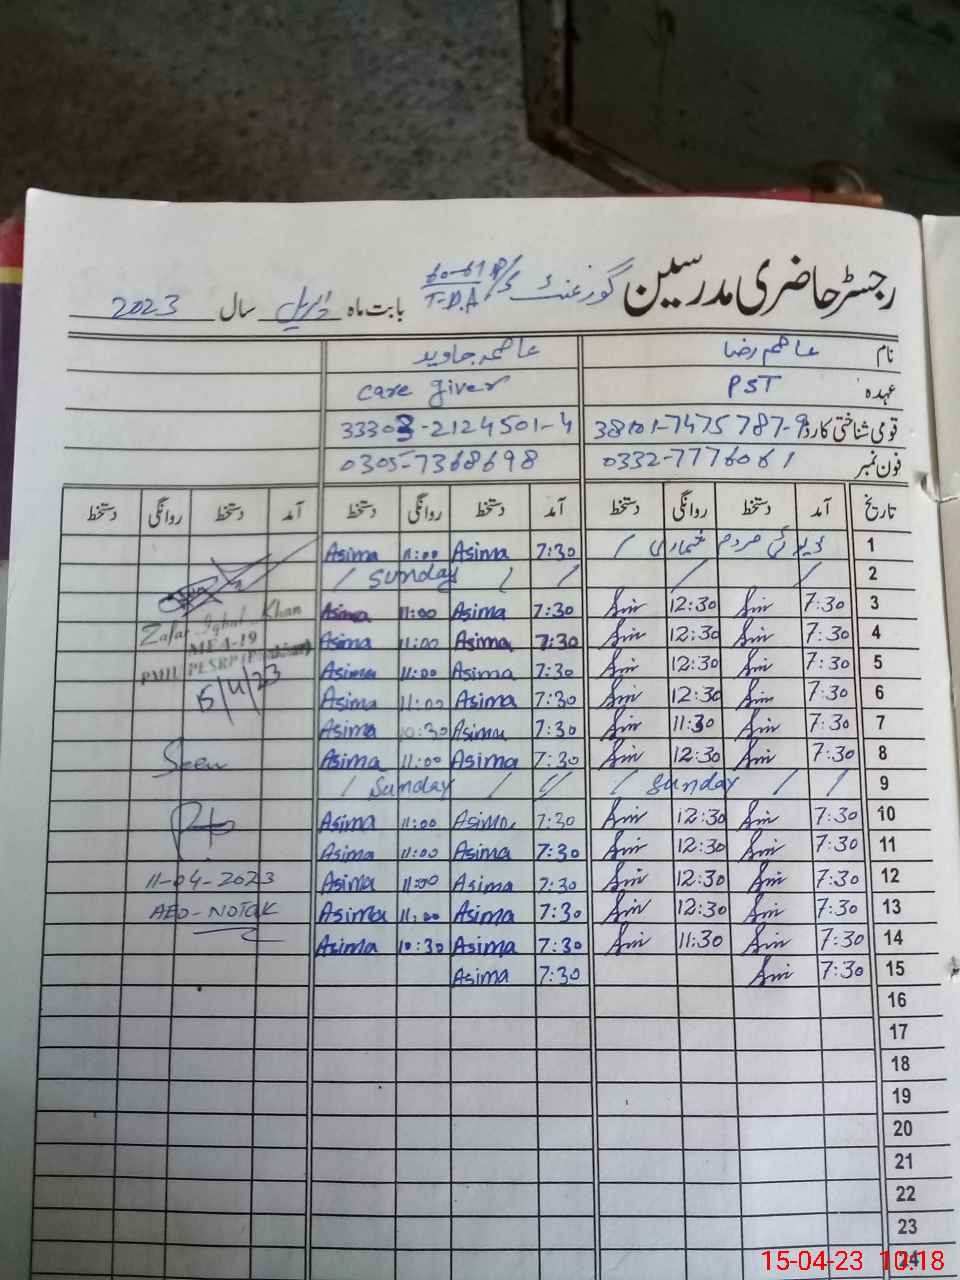 رجسٹر حاضری مدرسین گورنمنٹ P/S 60-61 T-D.A بابت ماہ اپریل سال 2023
نام عاصم رضا عاصمہ جاوید
عہدہ PST care giver
قومی شناختی کارڈ 38101-7475787-9 33303-2124501-4
فون نمبر 0332-7776061 0305-7368698
تاریخ آمد دستخط روانگی دستخط آمد دستخط روانگی دستخط آمد دستخط روانگی دستخط
1 ڈیوٹی مردم شماری / 7:30 Asima 11:00 Asima
2 / / / / Sunday /
3 7:30 12:30 7:30 Asima 11:00 Asima
4 7:30 12:30 7:30 Asima 11:00 Asima
5 7:30 12:30 7:30 Asima 11:00 Asima
6 7:30 12:30 7:30 Asima 11:00 Asima
7 7:30 11:30 7:30 Asima 10:30 Asima
8 7:30 12:30 7:30 Asima 11:00 Asima
9 / / Sunday / / / Sunday /
10 7:30 12:30 7:30 Asima 11:00 Asima
11 7:30 12:30 7:30 Asima 11:00 Asima
12 7:30 12:30 7:30 Asima 11:00 Asima
13 7:30 12:30 7:30 Asima 11:00 Asima
14 7:30 11:30 7:30 Asima 10:30 Asima
15 7:30 7:30 Asima
16
17
18
19
20
21
22
23
24
Zafar Iqbal Khan
MEA-19
PMIU PESRP
15/4/23
Seen
11-04-2023
AEO-NOTAK
15-04-23 10:18